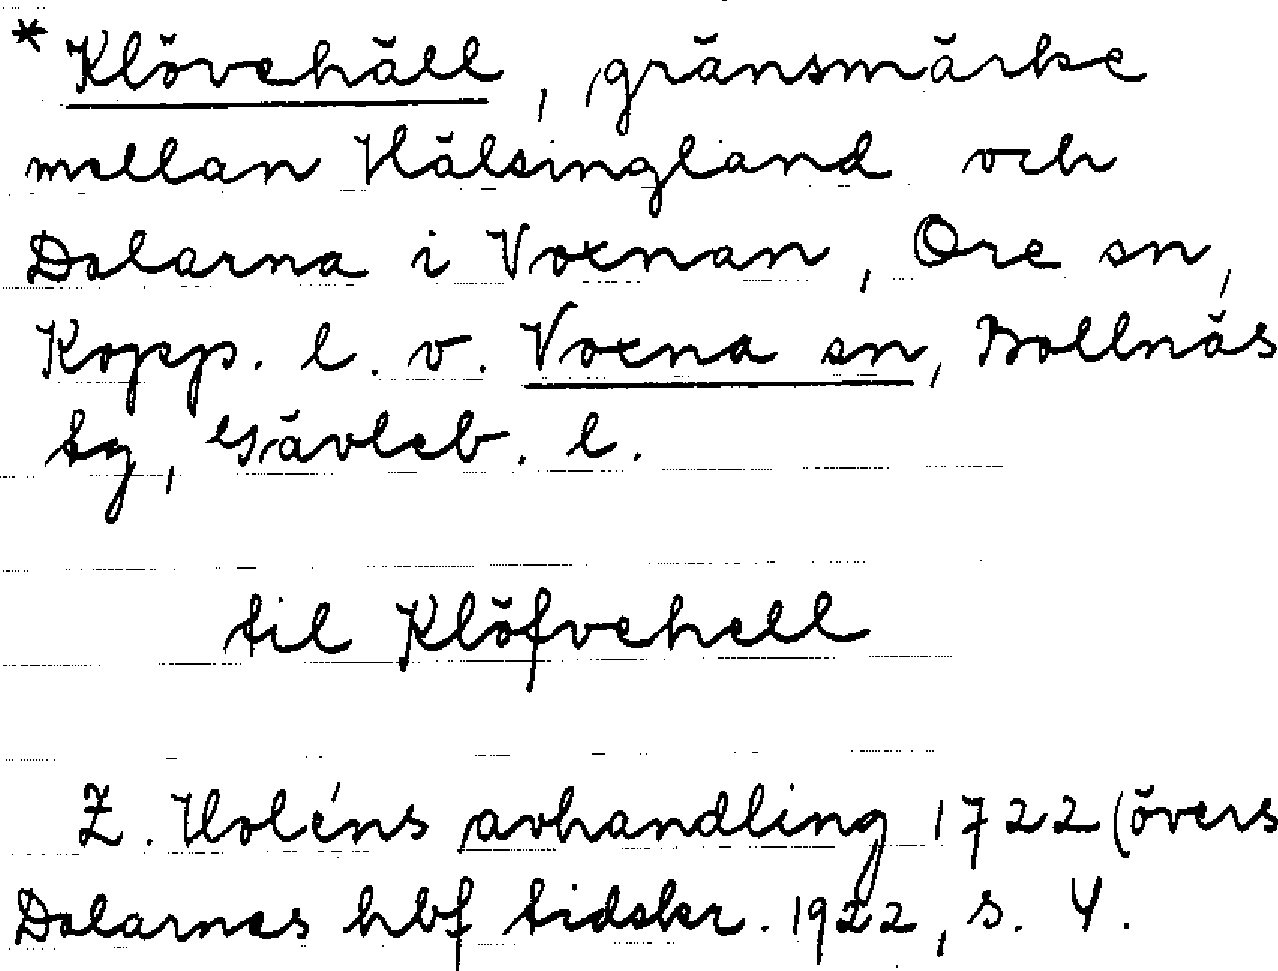 * Klövehäll, gränsmärke
mellan Hälsingland och
Dalarna i Voxnan, Ore sn,
Kopp. l. v. Voxna sn, Bollnäs
tg, Gävleb. l.
til Klöfvehell
Z. Holéns avhandling 1722 (övers
Dalarnes hbf tidskr. 1922, s. 4.